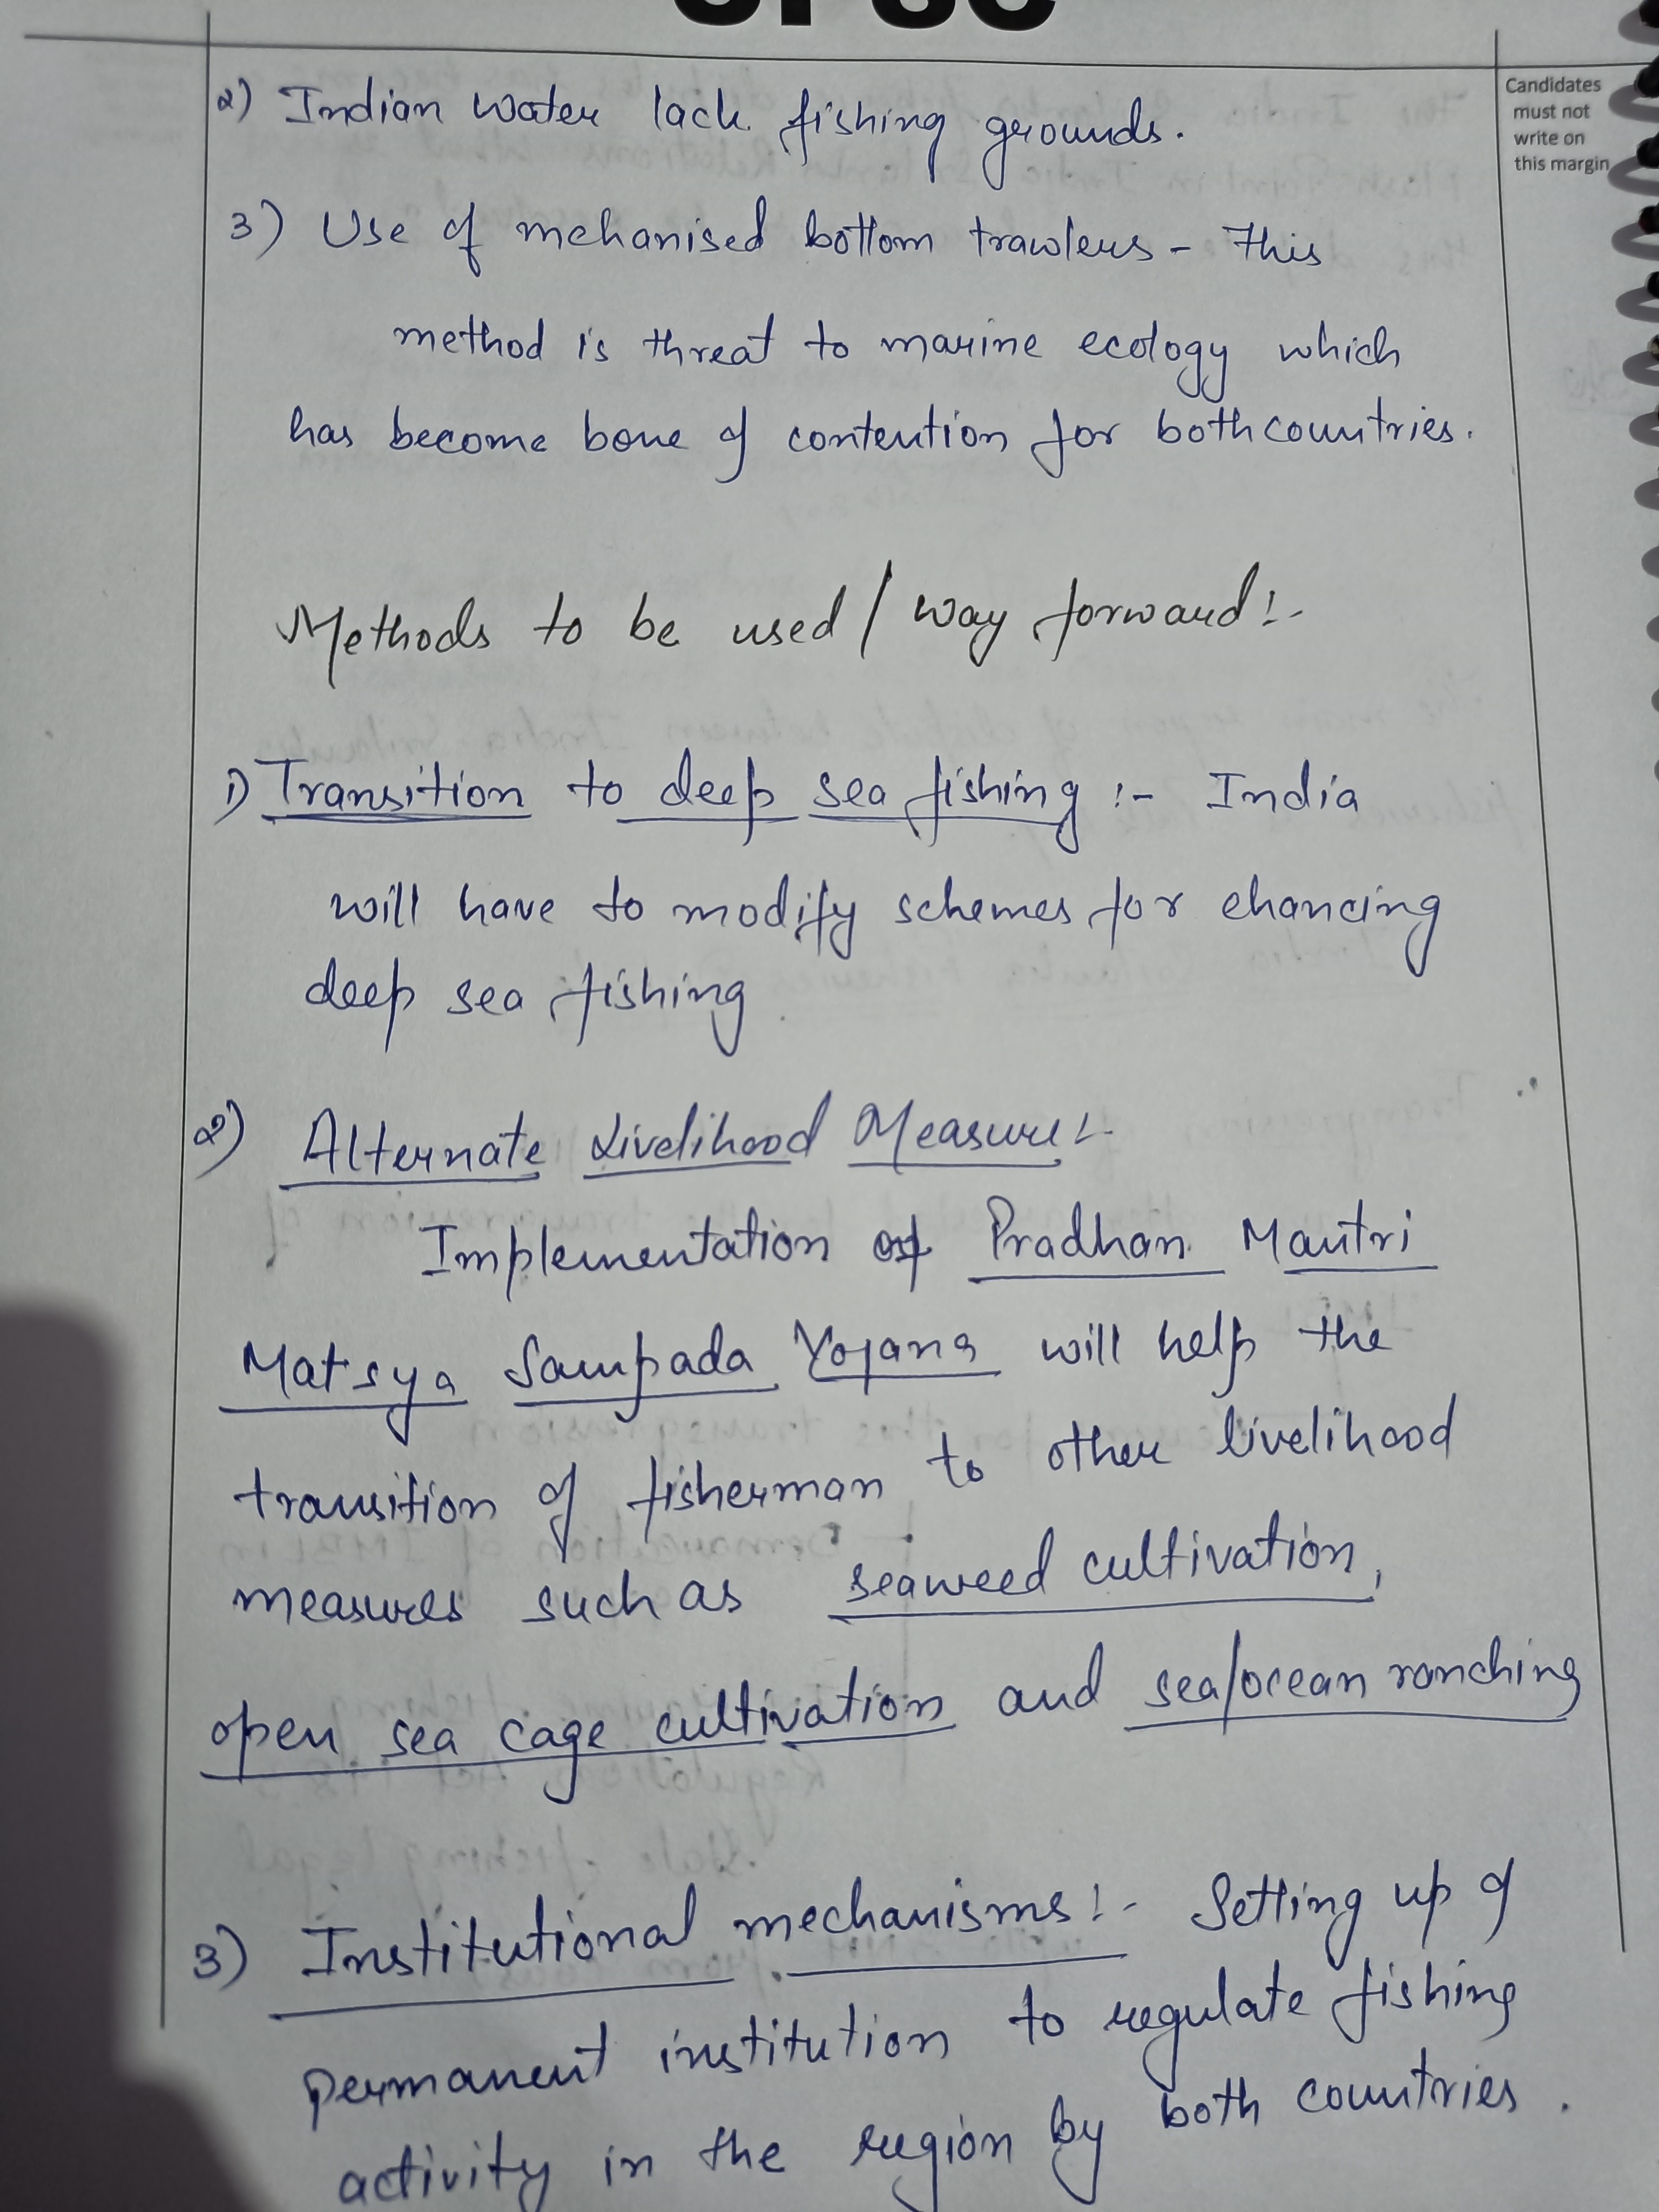 UPSC
Candidates
must not
write on
this margin
2) Indian water lack fishing grounds.
3) Use of mehanised bottom trawlers - This
method is threat to marine ecology which
has become bone of contention for both countries.
Methods to be used / way forward :-
1) Transition to deep sea fishing :- India
will have to modify schemes for ehancing
deep sea fishing
2) Alternate Livelihood Measure :-
Implementation of Pradhan Mantri
Matsya Sampada Yojana will help the
transition of fisherman to other livelihood
measures such as seaweed cultivation,
open sea cage cultivation and sea/ocean ranching
3) Institutional mechanisms :- Setting up of
permanent institution to regulate fishing
activity in the region by both countries.